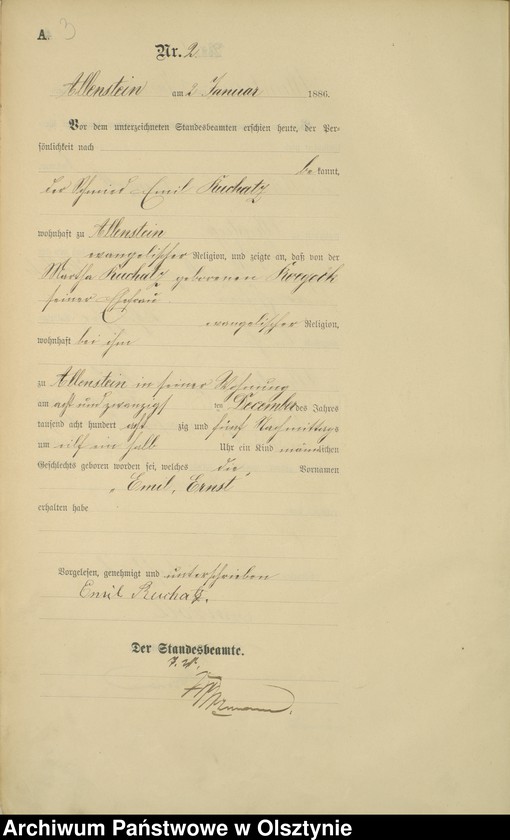 A. 3
Nr. 2
Allenstein am 2 Januar 1886.
Vor dem unterzeichneten Standesbeamten erschien heute, der Per-
sönlichkeit nach
be kannt,
der Schmied Emil Ruchatz
wohnhaft zu Allenstein
evangelischer Religion, und zeigte an, daß von der
Martha Ruchatz geborenen
seiner Ehefrau
evangelischer Religion,
wohnhaft bei ihm
zu Allenstein in seiner Wohnung
am acht und zwanzigst ten December des Jahres
tausend acht hundert acht zig und fünf Nachmittags
um eilf ein halb Uhr ein Kind männlichen
Geschlechts geboren worden sei, welches die Vornamen
Emil, Ernst
erhalten habe
Vorgelesen, genehmigt und unterschrieben
Emil Ruchatz.
Der Standesbeamte.
J. V.
Archiwum Państwowe w Olsztynie